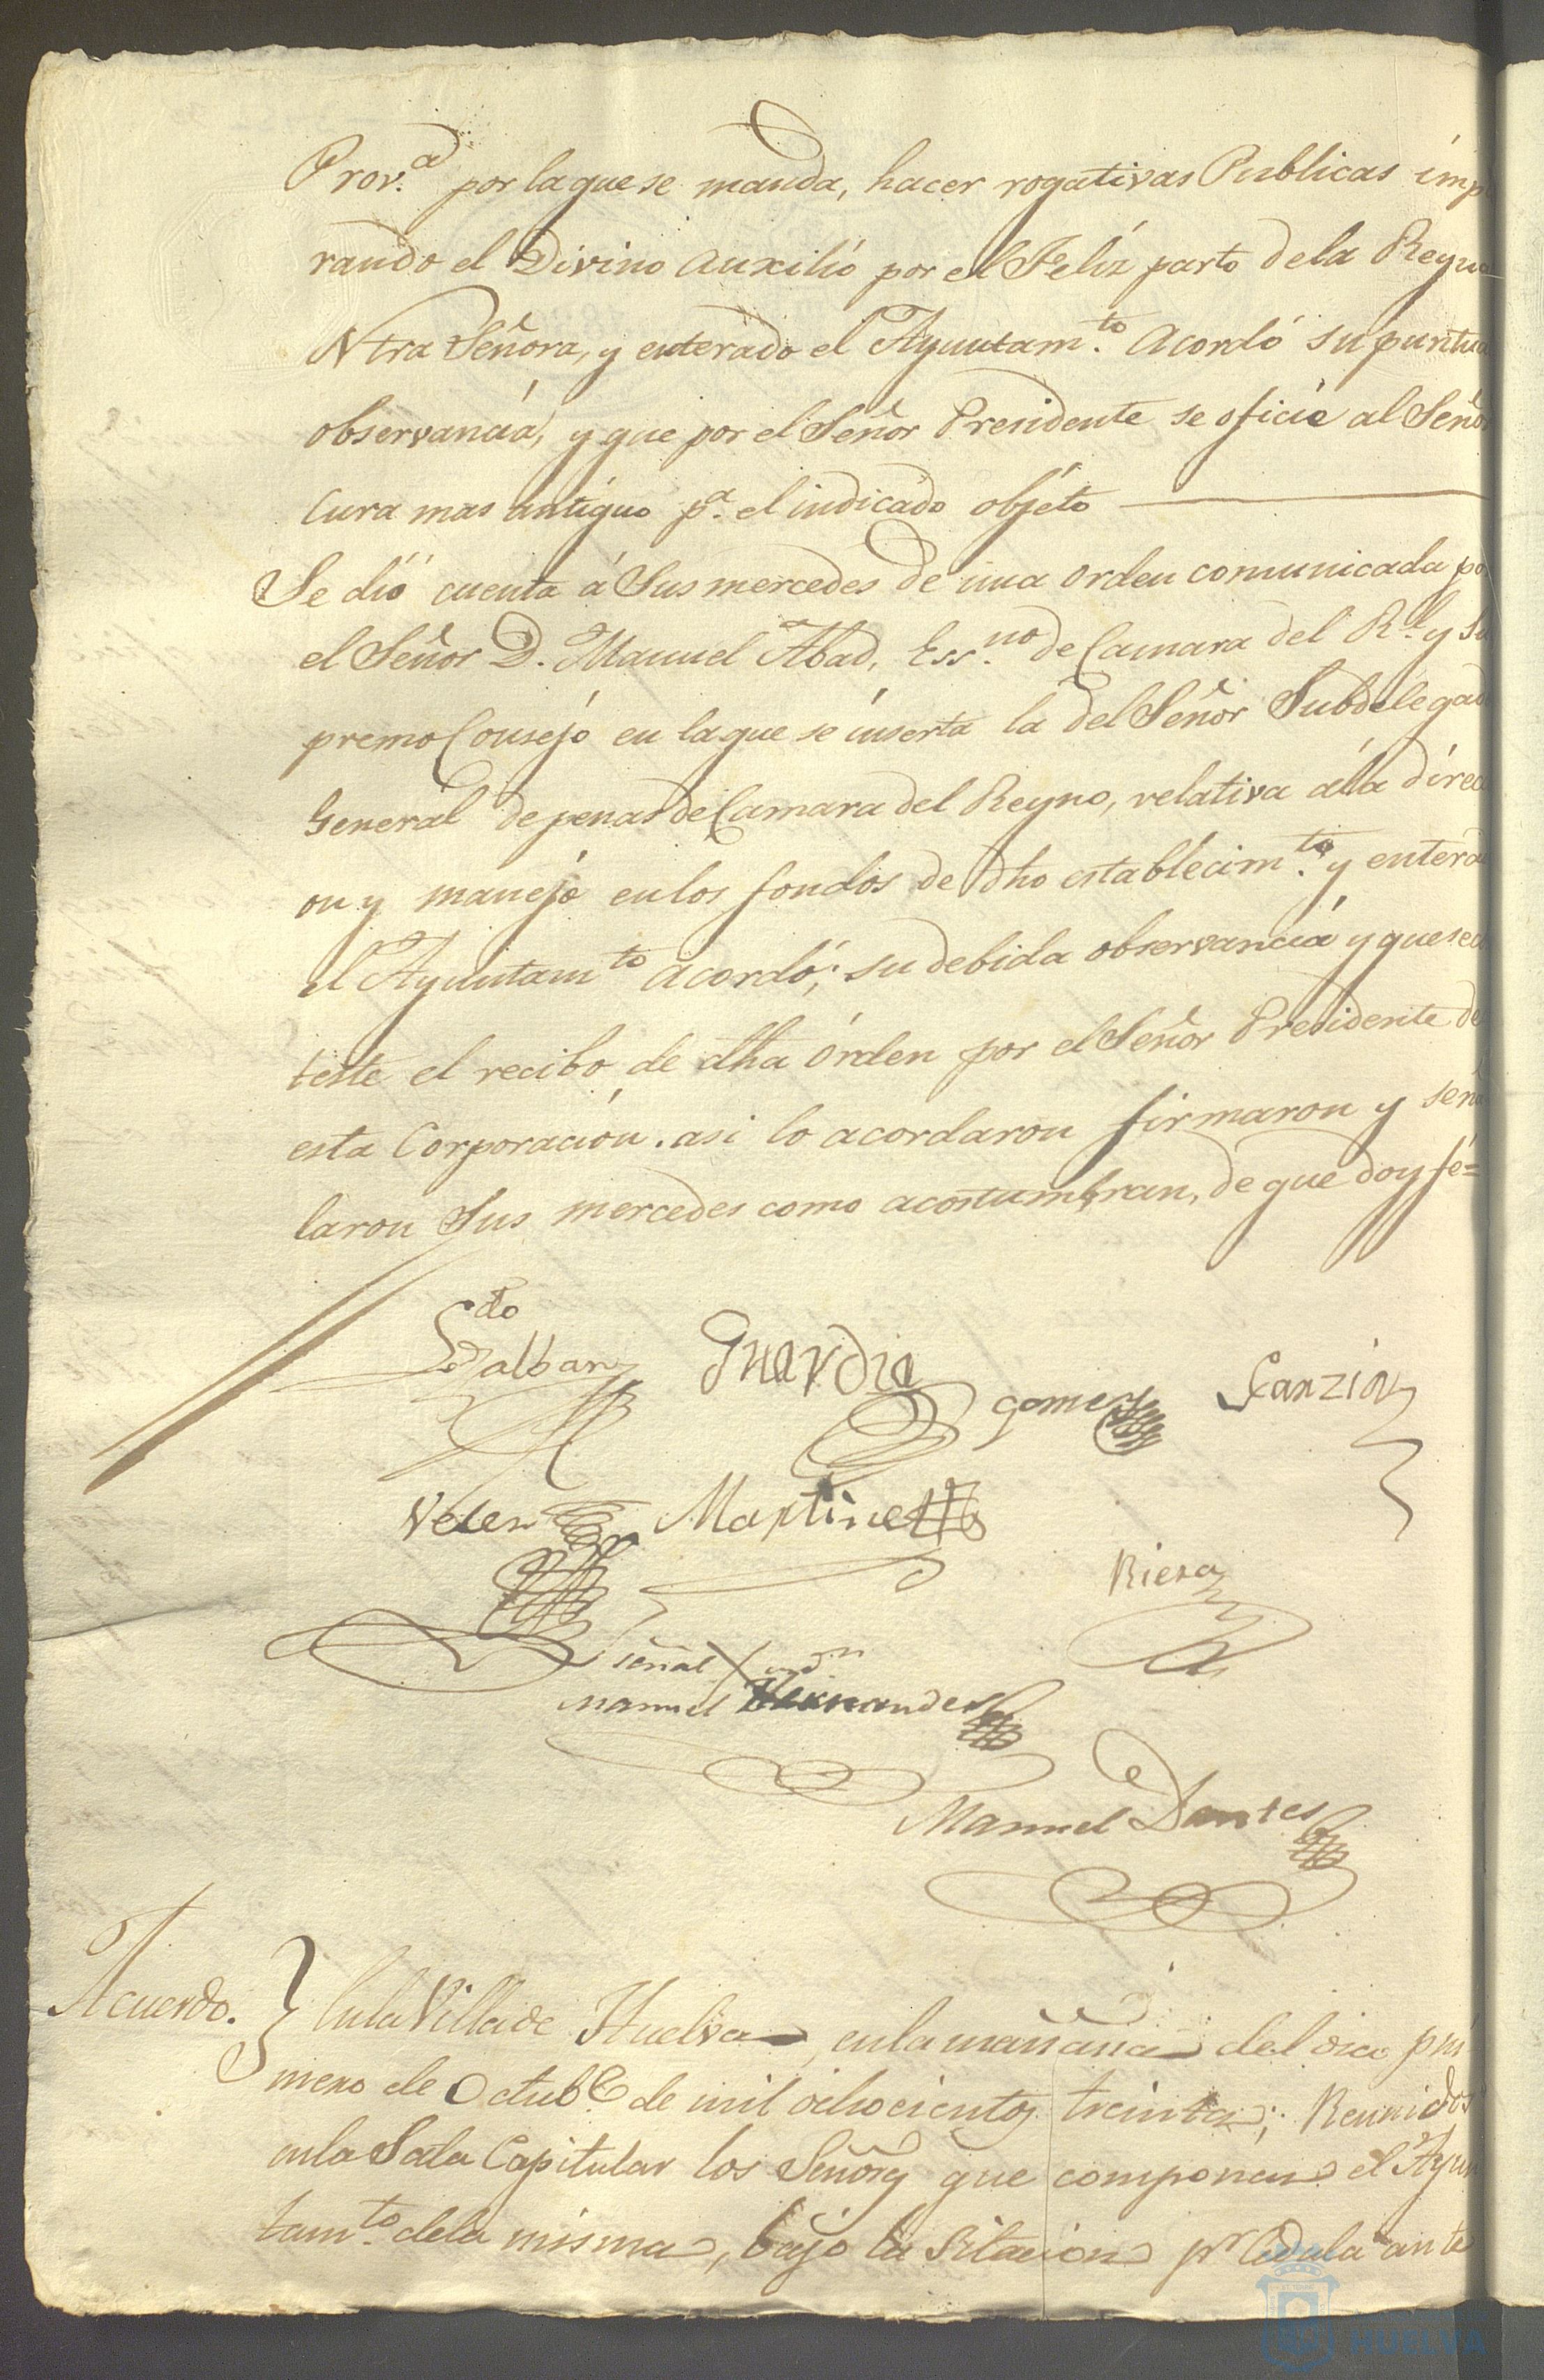 Prov.a por la que se manda, hacer rogativas Publicas imp
rando el Divino Auxilio por el Feliz parto de la Reyna
Ntra Señora, y enterado el Ayuntam.to Acordó su puntua
observancia, y que por el Señor Presidente se oficie al Señor
Cura mas antiguo p.a el indicado objeto
Se dió cuenta á Sus mercedes de una orden comunicada po
el Señor D. Manuel Abad, Ess.no de Camara del R.l y Su
premo Consejo en la que se inserta la del Señor Subdelegad
General de penas de Camara del Reyno, relativa á la direc
on y manejo en los fondos de dho establecim.to y enterad
el Ayuntam.to acordó; su debida observancia y que se
teste el recibo de dha órden por el Señor Presidente de
esta Corporacion. asi lo acordaron firmaron y seña
laron Sus mercedes como acostumbran, de que doy fé=
Guardia
Gomez
Velez Martinez
Riera
señal X ord.n
Manuel Hernandez
Manuel Dantes
Acuerdo. } En la Villa de Huelva, en la mañana del dia pri
mero de Octub.e de mil ochocientos treinta; Reunidos
en la Sala Capitular los Señores que componen el Ayun
tam.to de la misma, bajo la Sitacion p.r Cedula ante
HUELVA